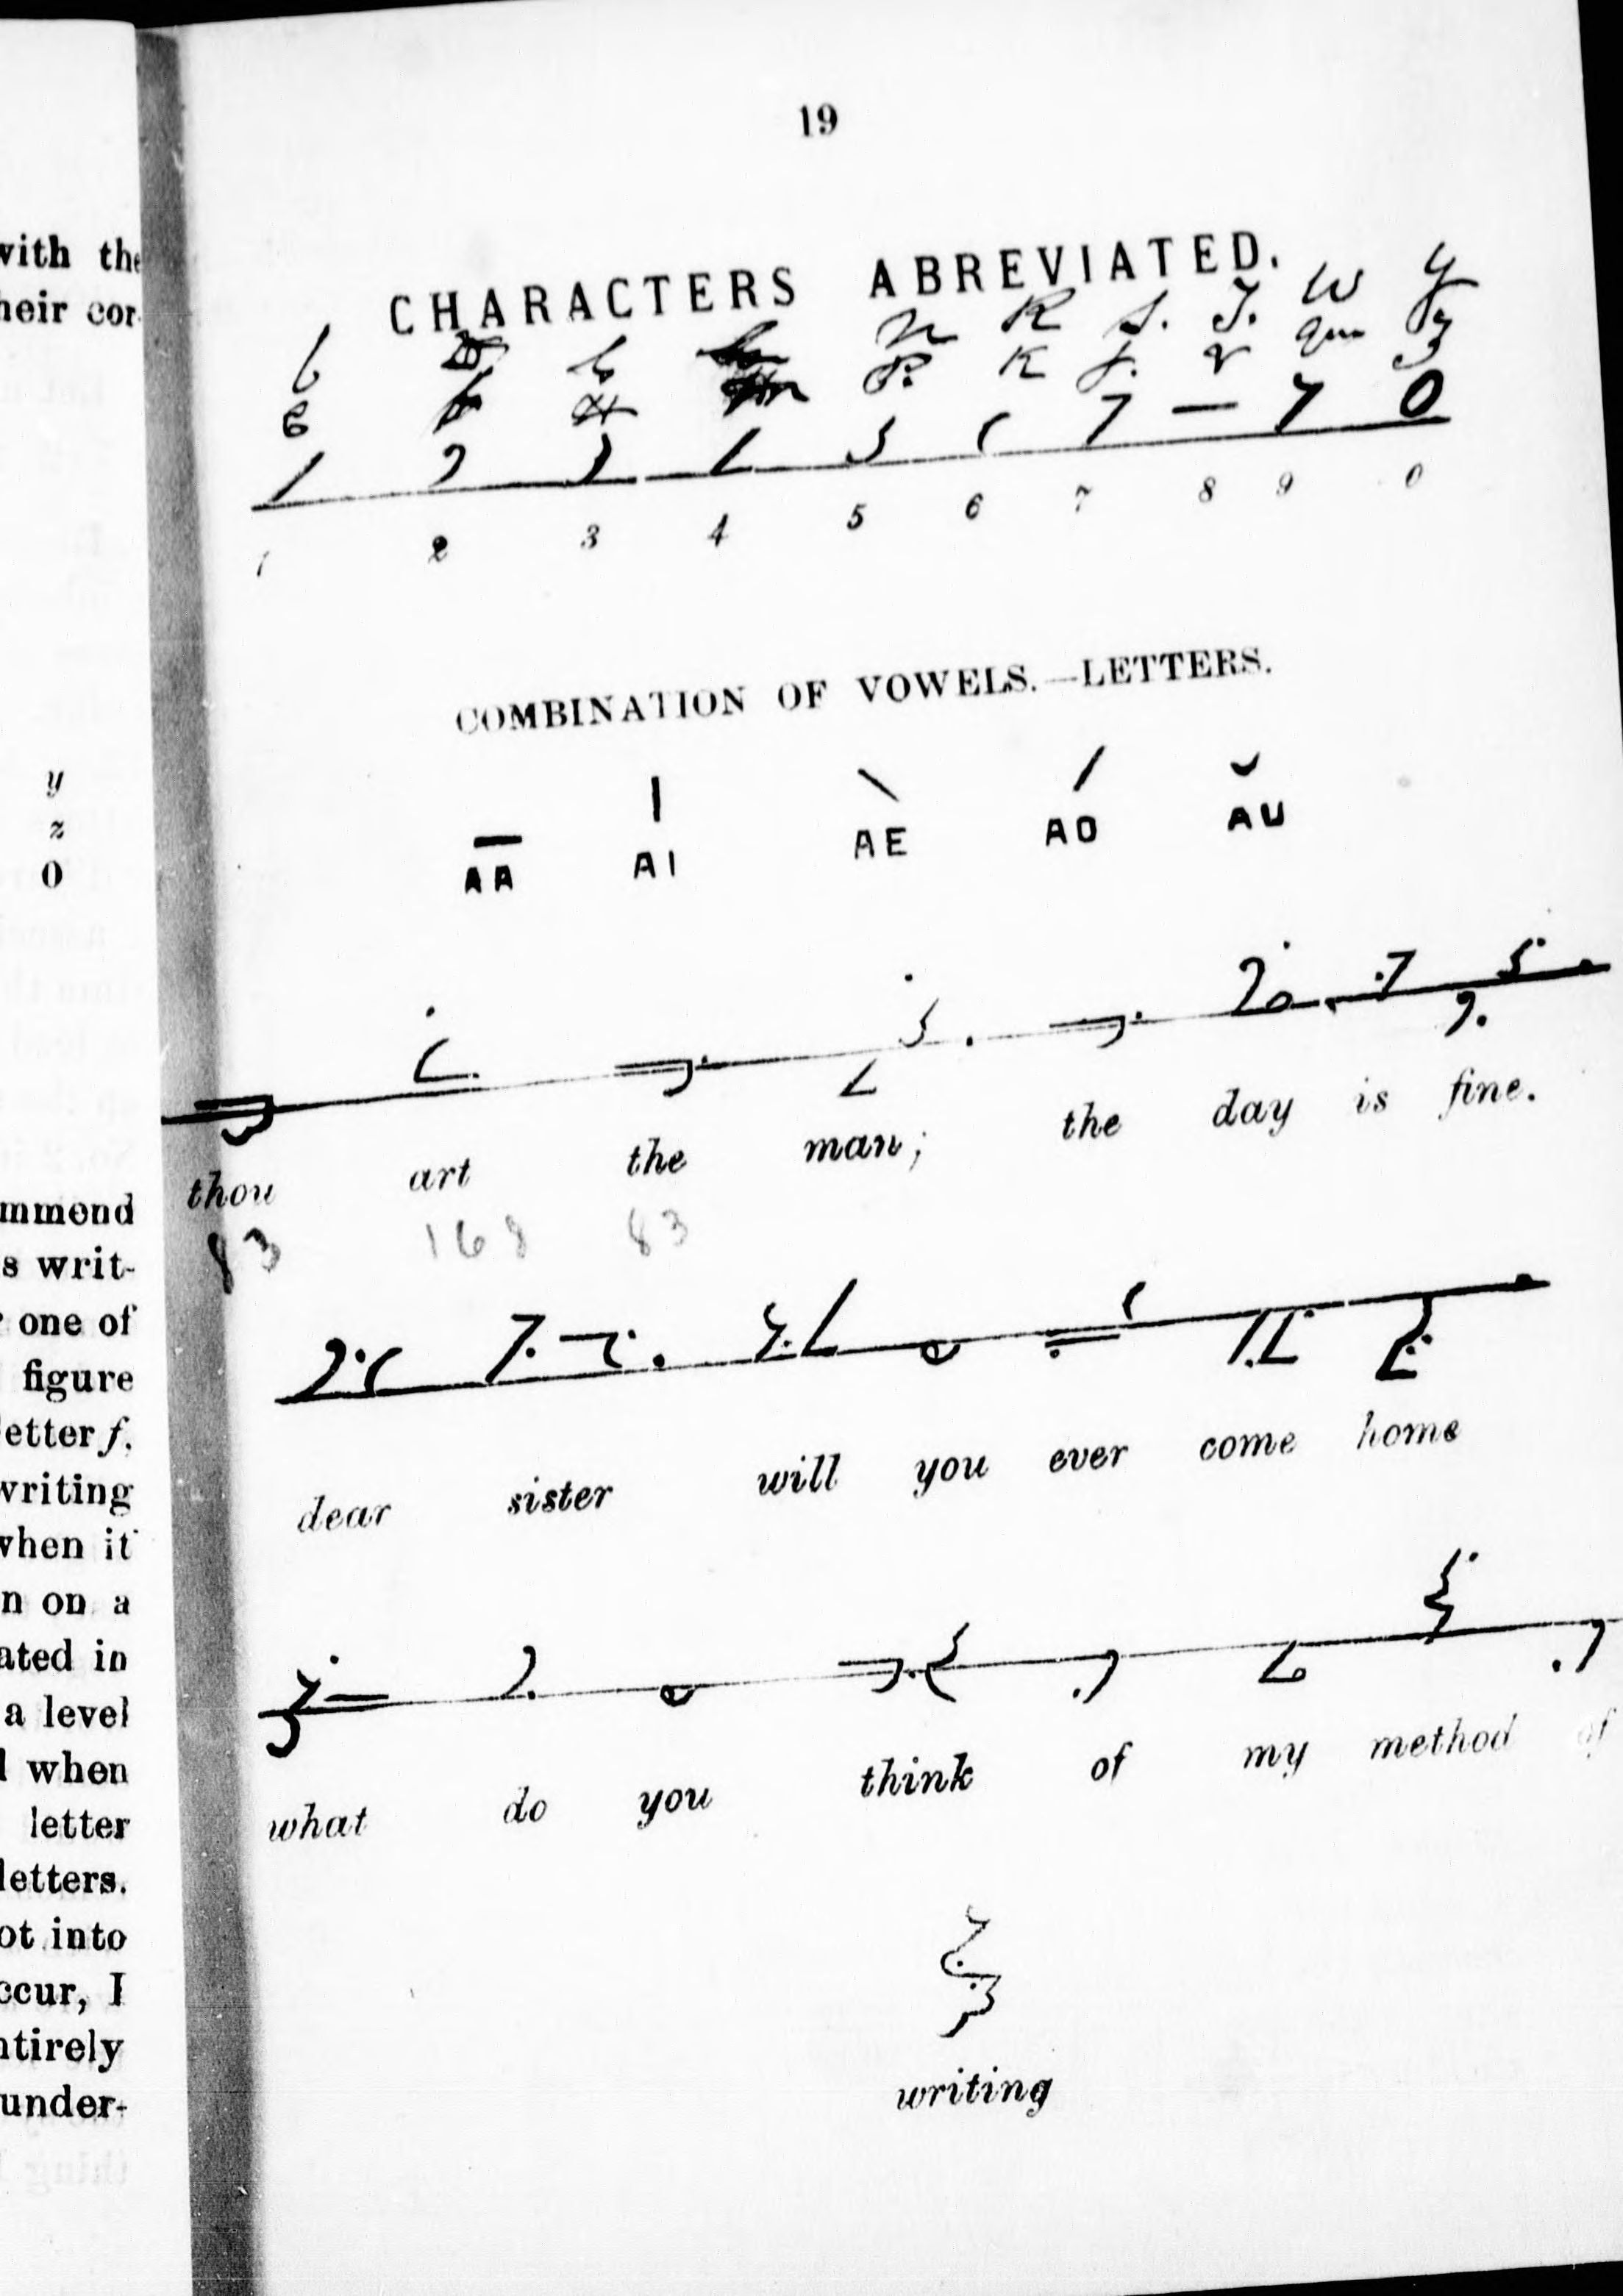 with the
their cor-
y
z
0
ommend
s writ-
r one of
figure
letter f.
writing
when it
n on a
ated in
a level
l when
letter
letters.
ot into
occur, I
ntirely
under-
19
CHARACTERS ABREVIATED.
n R S. T. W y
P. K f. v qu z
1 2 3 4 5 6 7 8 9 0
COMBINATION OF VOWELS.—LETTERS.
AA AI AE AO AU
thou art the man; the day is fine.
83 168 83
dear sister will you ever come home
what do you think of my method of
writing